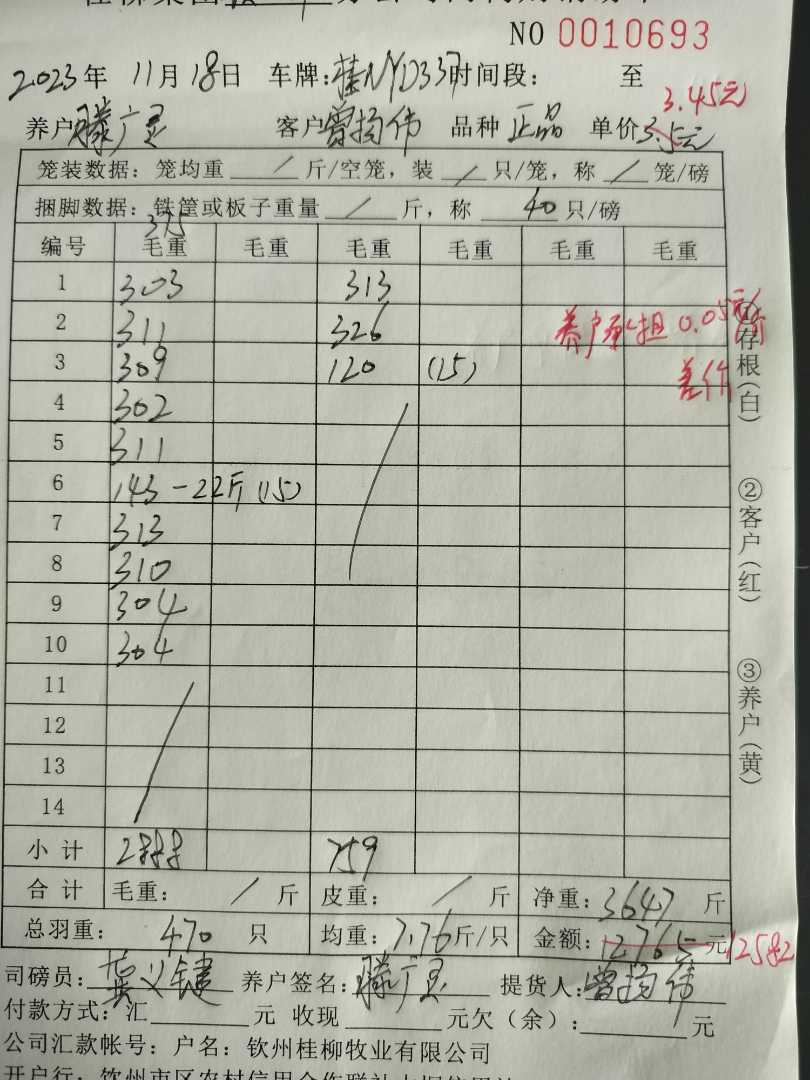 NO 0010693
2023年 11月18日 车牌:桂NYD337 时间段: 至
3.45元
养户 滕广灵 客户 曾扬伟 品种 正品 单价 3.5元
笼装数据: 笼均重 / 斤/空笼, 装 / 只/笼, 称 / 笼/磅
捆脚数据: 铁筐或板子重量 / 斤, 称 40 只/磅
编号 毛重 毛重 毛重 毛重 毛重 毛重
1 303 313
2 311 326
养户承担 0.05元/斤
3 309 120 (15)
差价
4 302
5 311
6 143-22斤(15)
7 313
8 310
9 304
10 304
11
12
13
14
小计 2888 759
合计 毛重: / 斤 皮重: / 斤 净重: 3647 斤
总羽重: 470 只 均重: 7.76 斤/只 金额: 12765 元 12582
司磅员: 义键 养户签名: 滕广灵 提货人: 曾扬伟
付款方式: 汇 元 收现 元欠(余): / 元
公司汇款帐号: 户名: 钦州桂柳牧业有限公司
①存根(白)
②客户(红)
③养户(黄)